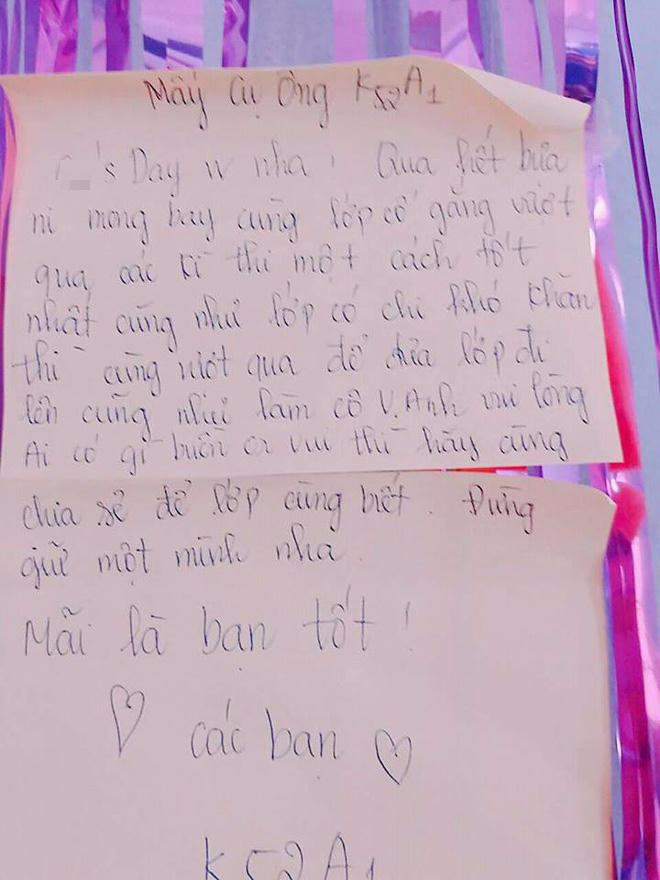 Mấy cụ ông K52A1
's Day vv nha! Qua hết bữa
ni mong bay cùng lớp cố gắng vượt
qua các kì thi một cách tốt
nhất cũng như lớp có chi khó khăn
thì cùng vượt qua để đưa lớp đi
lên cũng như làm cô V.Anh vui lòng
Ai có gì buồn or vui thì hãy cùng
chia sẻ để lớp cùng biết. Đừng
giữ một mình nha.
Mãi là bạn tốt!
♡ các bạn ♡
K52A1